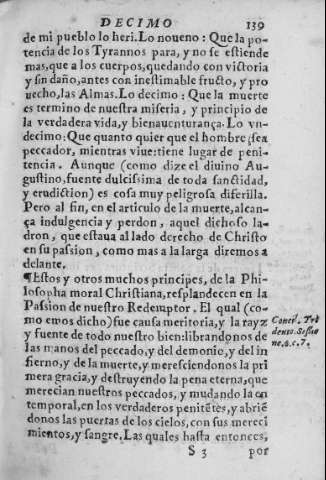 DECIMO 139
de mi pueblo lo heri. Lo noueno: Que la po-
tencia de los Tyrannos para, y no se estiende
mas, que a los cuerpos, quedando con victoria
y sin daño, antes con inestimable fructo, y pro
uecho, las Almas. Lo decimo: Que la muerte
es termino de nuestra miseria, y principio de
la verdadera vida, y bienauenturança. Lo vn-
decimo: Que quanto quier que el hombre sea
peccador, mientras viue: tiene lugar de peni-
tencia. Aunque (como dize el diuino Au-
gustino, fuente dulcissima de toda sanctidad,
y erudiction) es cosa muy peligrosa diferilla.
Pero al fin, en el articulo de la muerte, alcan-
ça indulgencia y perdon, aquel dichoso la-
dron, que estaua al lado derecho de Christo
en su passion, como mas a la larga diremos a
delante.
¶Estos y otros muchos principes, de la Phi-
losopha moral Christiana, resplandecen en la
Passion de nuestro Redemptor. El qual (co-
mo emos dicho) fue causa meritoria, y la rayz
y fuente de todo nuestro bien: librandonos de
las manos del peccado, y del demonio, y del in
fierno, y de la muerte, y meresciendonos la pri
mera gracia, y destruyendo la pena eterna, que
merecian nuestros peccados, y mudando la en
temporal, en los verdaderos penitētes, y abriē
donos las puertas de los cielos, con sus mereci
mientos, y sangre. Las quales hasta entonces,
Concil. Tri
dento. Sessio
ne. 6. c. 7.
S 3 por